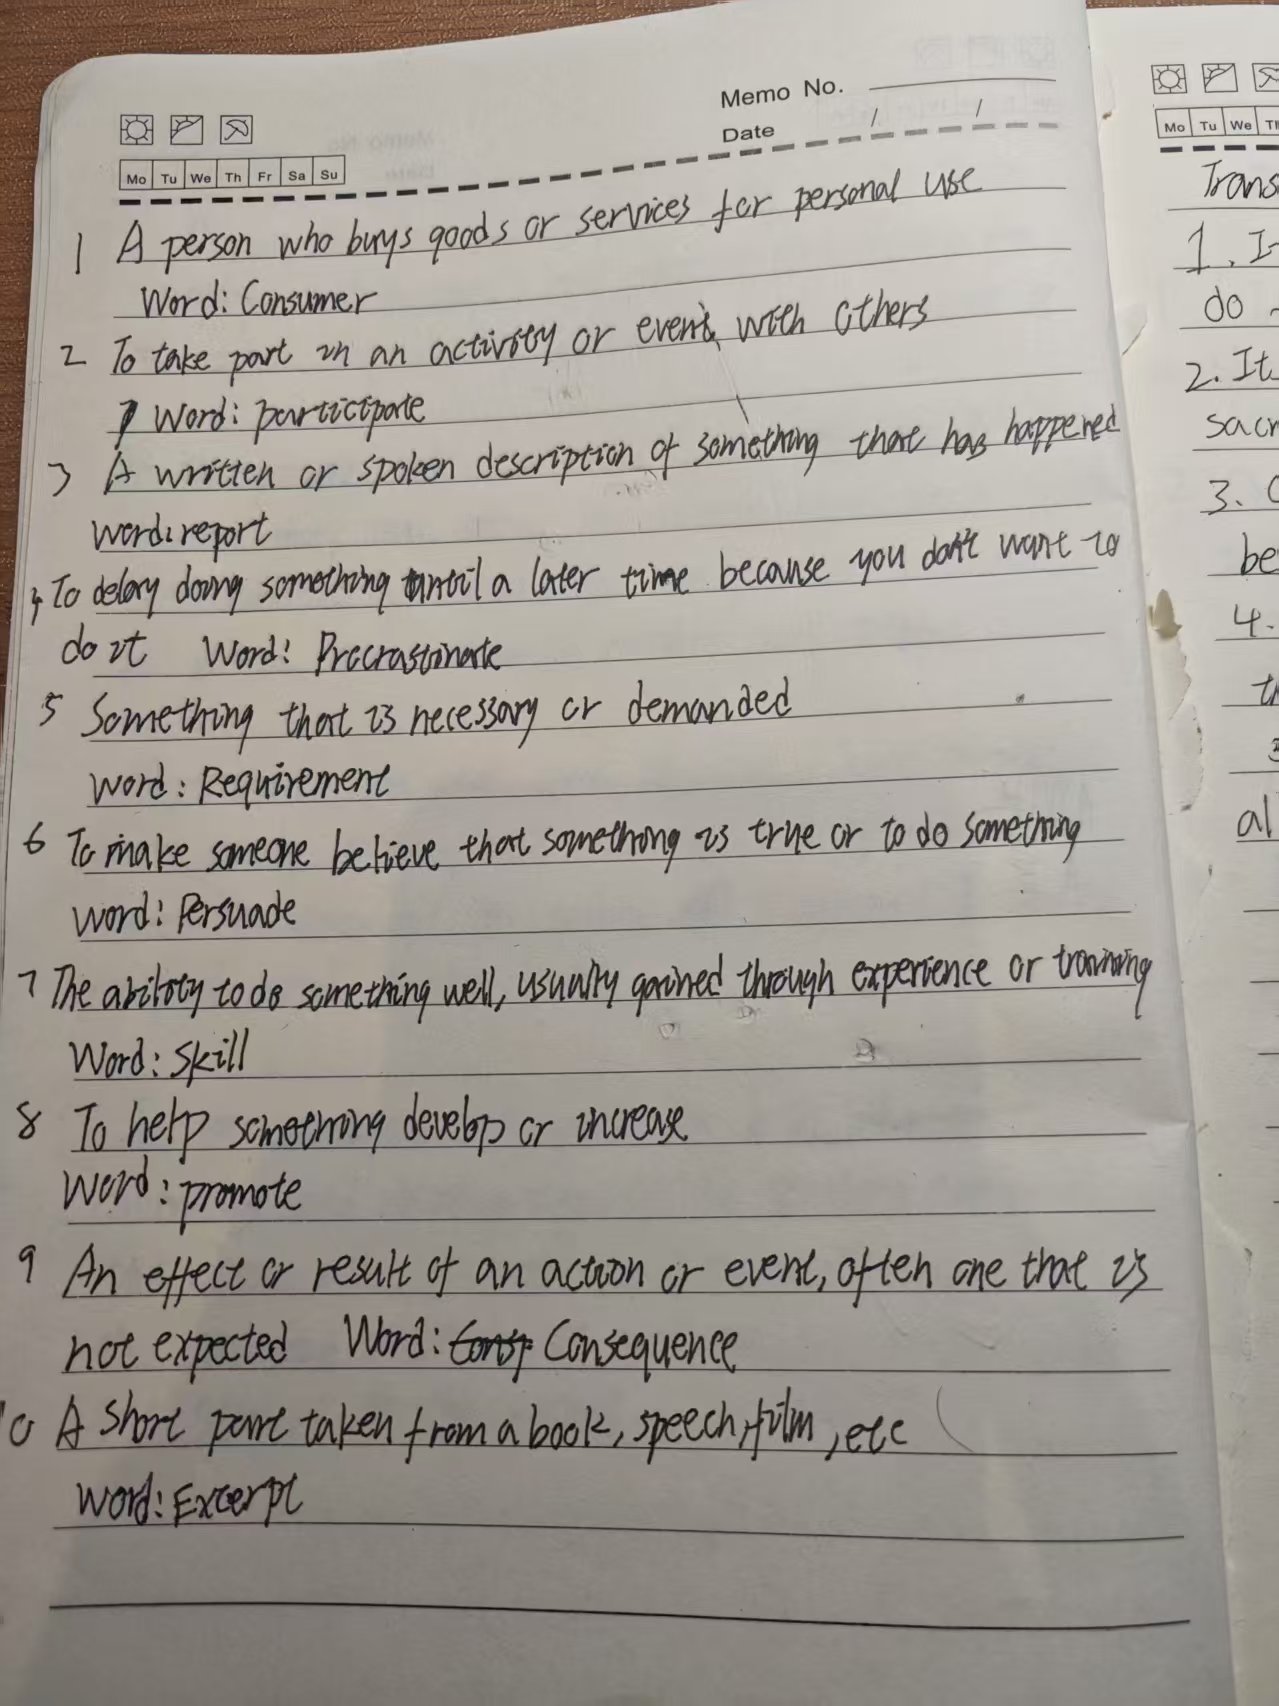 Memo No.
Date / /
Mo Tu We Th Fr Sa Su
1 A person who buys goods or services for personal use
Word: Consumer
2 To take part in an activity or event, with others
Word: participate
3 A written or spoken description of something that has happened
Word: report
4 To delay doing something until a later time because you don't want to
do it Word: Procrastinate
5 Something that is necessary or demanded
Word: Requirement
6 To make someone believe that something is true or to do something
Word: Persuade
7 The ability to do something well, usually gained through experience or training
Word: Skill
8 To help something develop or increase
Word: promote
9 An effect or result of an action or event, often one that is
not expected Word: Consequence
10 A short part taken from a book, speech, film, etc
Word: Excerpt
Mo Tu We
1.
do
2. It
3.
be
4.